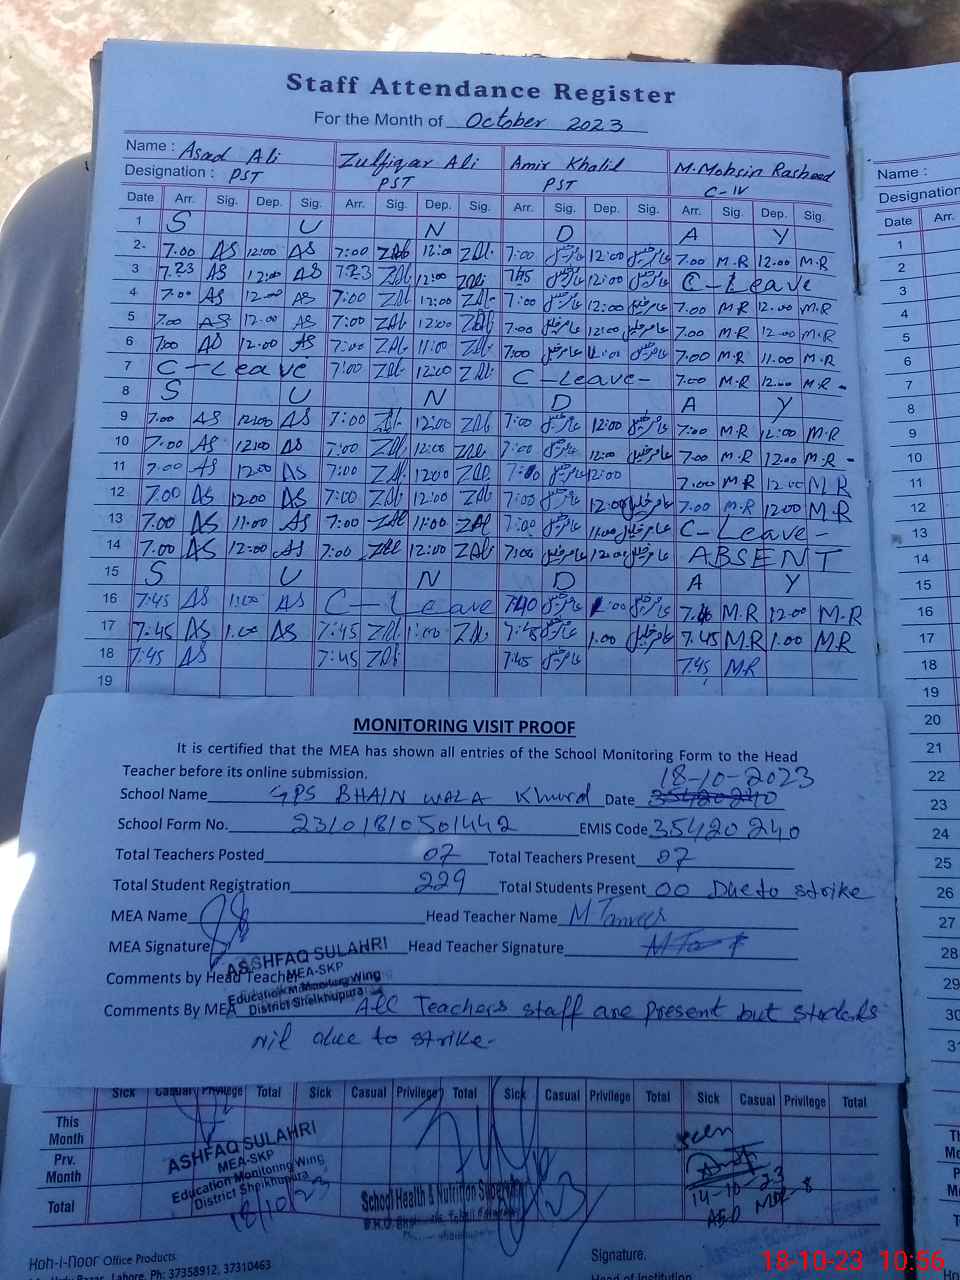 Staff Attendance Register
For the Month of October 2023
Name : Asad Ali Zulfiqar Ali Amir Khalid M. Mohsin Rasheed Name :
Designation : PST PST PST C-IV Designation
Date Arr. Sig. Dep. Sig. Arr. Sig. Dep. Sig. Arr. Sig. Dep. Sig. Arr. Sig. Dep. Sig. Date Arr.
1 S U N D A Y 1
2 7.00 AS 12:00 AS 7:00 ZAli 12:00 ZAli 7:00 12:00 7.00 M.R 12.00 M.R 2
3 7.23 AS 12:00 AS 7:23 ZAli 12:00 ZAli 12:00 C-Leave 3
4 7.00 AS 12.00 AS 7:00 ZAli 12:00 ZAli 7:00 12:00 7.00 M.R 12.00 M.R 4
5 7.00 AS 12.00 AS 7:00 ZAli 12:00 ZAli 7:00 12:00 7.00 M.R 12.00 M.R 5
6 7:00 AS 12.00 AS 7:00 ZAli 11:00 ZAli 7:00 7.00 M.R 11.00 M.R 6
7 C-Leave 7:00 ZAli 12:00 ZAli C-Leave- 7.00 M.R 12.00 M.R - 7
8 S U N D A Y 8
9 7.00 AS 12:00 AS 7:00 ZAli 12:00 ZAli 7:00 12:00 7:00 M.R 12:00 M.R 9
10 7.00 AS 12:00 AS 7:00 ZAli 12:00 ZAli 7:00 12:00 7.00 M.R 12.00 M.R - 10
11 7.00 AS 12.00 AS 7:00 ZAli 12:00 ZAli 7:00 12:00 7.00 M.R 12.00 M.R 11
12 7.00 AS 12.00 AS 7:00 ZAli 12:00 ZAli 7:00 12:00 7.00 M.R 12.00 M.R 12
13 7.00 AS 11.00 AS 7:00 ZAli 11:00 ZAli 7:00 11:00 C-Leave- 13
14 7.00 AS 12:00 AS 7:00 ZAli 12:00 ZAli 7:00 12:00 ABSENT 14
15 S U N D A Y 15
16 7:45 AS 1:00 AS C-Leave 7:40 1:00 M.R 12.00 M.R 16
17 7:45 AS 1.00 AS 7:45 ZAli 1:00 ZAli 7:45 1.00 7.45 M.R 1.00 M.R 17
18 7:45 AS 7:45 ZAli 7:45 7.45 M.R 18
19 19
20
21
22
23
24
25
26
27
28
29
30
MONITORING VISIT PROOF
It is certified that the MEA has shown all entries of the School Monitoring Form to the Head
Teacher before its online submission.
18-10-2023
School Name GPS BHAIN WALA Khurd Date 35420240
School Form No. 23101810501442 EMIS Code 35420240
Total Teachers Posted 07 Total Teachers Present 07
Total Student Registration 229 Total Students Present 00 Due to strike
MEA Name Head Teacher Name M Tanveer
MEA Signature Head Teacher Signature
ASSHFAQ SULAHRI
MEA-SKP
Comments by Head Teacher
Education Monitoring Wing
District Sheikhupura
Comments By MEA All Teachers staff are present but students
nil due to strike-
Sick Casual Privilege Total Sick Casual Privilege Total Sick Casual Privilege Total Sick Casual Privilege Total
This Month
Prv. Month
Total
ASHFAQ SULAHRI
MEA-SKP
Education Monitoring Wing
District Sheikhupura
18/10/23
School Health & Nutrition Supervisor
Seen
14-10-23
Hoh-i-noor Office Products
Lahore, Ph: 37358912, 37310463
Signature.
Head of Institution
18-10-23 10:56